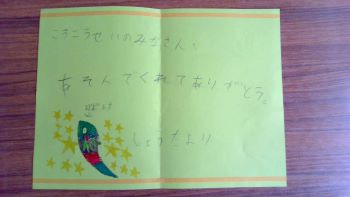 ころこうせいのみなさん、
あそんでくれてありがとう。
しょうたより